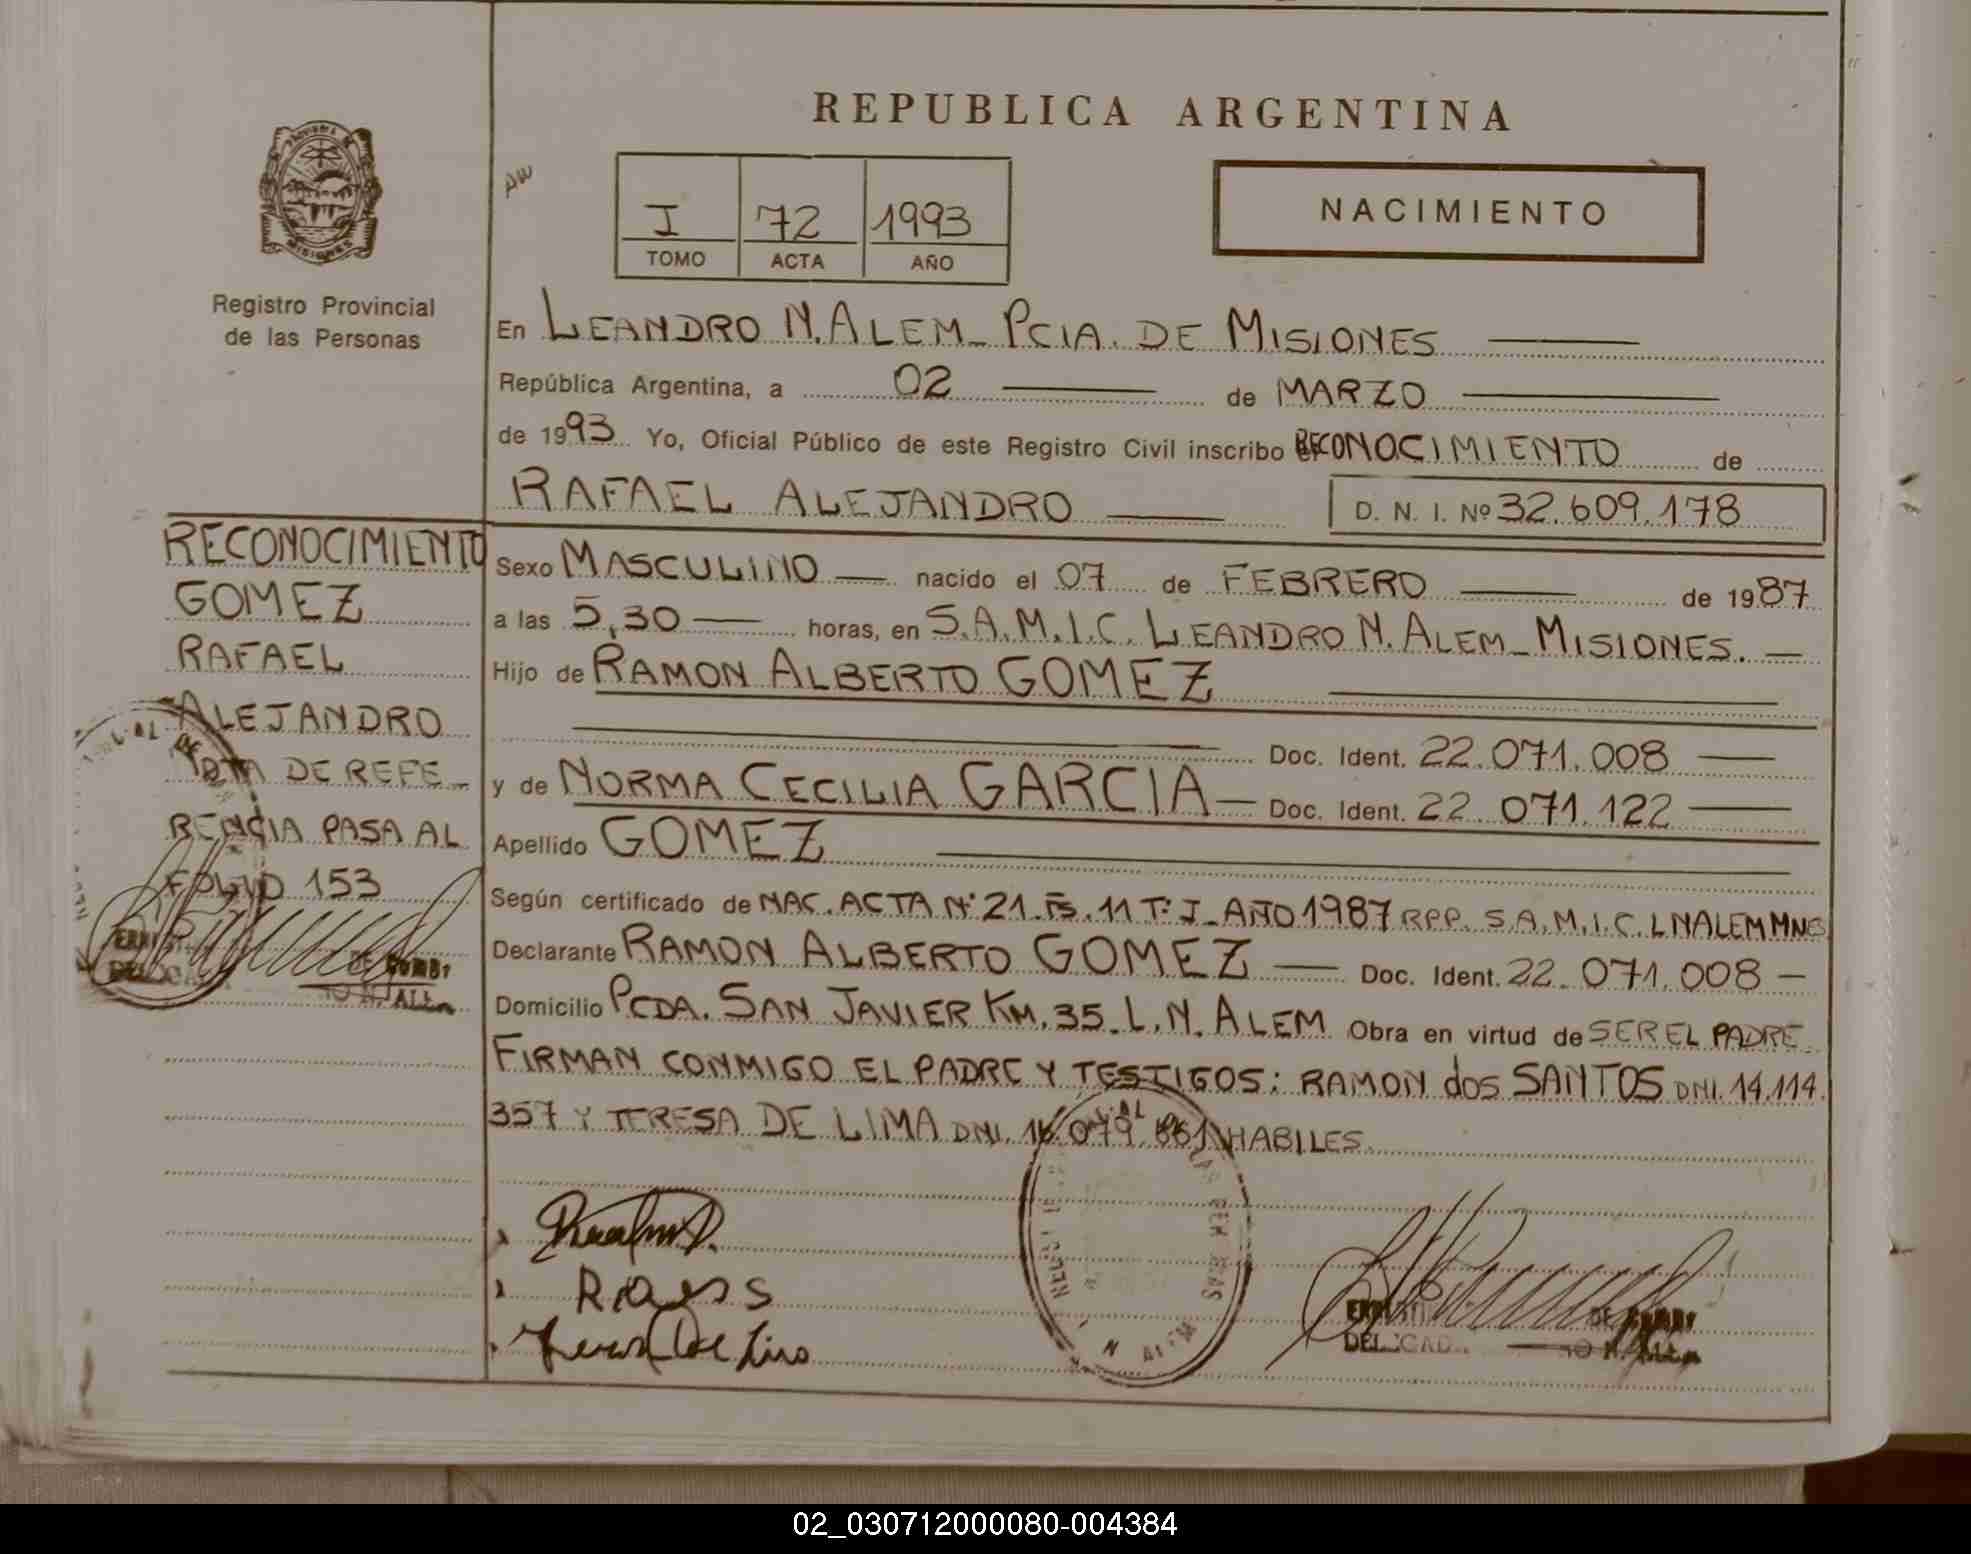 REPUBLICA ARGENTINA
NACIMIENTO
I 72 1993
TOMO ACTA AÑO
MISIONES
Registro Provincial
de las Personas
En LEANDRO N. ALEM_ PCIA. DE MISIONES
República Argentina, a 02 de MARZO
de 1993 Yo, Oficial Público de este Registro Civil inscribo RECONOCIMIENTO de
RAFAEL ALEJANDRO D. N. I. Nº 32.609.178
Sexo MASCULINO nacido el 07 de FEBRERO de 1987
a las 5,30 horas, en S.A.M.I.C. LEANDRO N. ALEM_MISIONES.
Hijo de RAMON ALBERTO GOMEZ
Doc. Ident. 22.071.008
y de NORMA CECILIA GARCIA Doc. Ident. 22.071.122
Apellido GOMEZ
Según certificado de NAC. ACTA Nº 21. Fs. 11 Tº I_ AÑO 1987 RPP. S.A.M.I.C. L N ALEM MNES
Declarante RAMON ALBERTO GOMEZ Doc. Ident. 22.071.008
Domicilio PCDA. SAN JAVIER KM. 35_L.N. ALEM Obra en virtud de SER EL PADRE
FIRMAN CONMIGO EL PADRE Y TESTIGOS: RAMON dos SANTOS DNI. 14.114.
357 Y TERESA DE LIMA DNI. HABILES.
RECONOCIMIENTO
GOMEZ
RAFAEL
ALEJANDRO
NOTA DE REFE_
RENCIA PASA AL
FOLIO 153
02_030712000080-004384